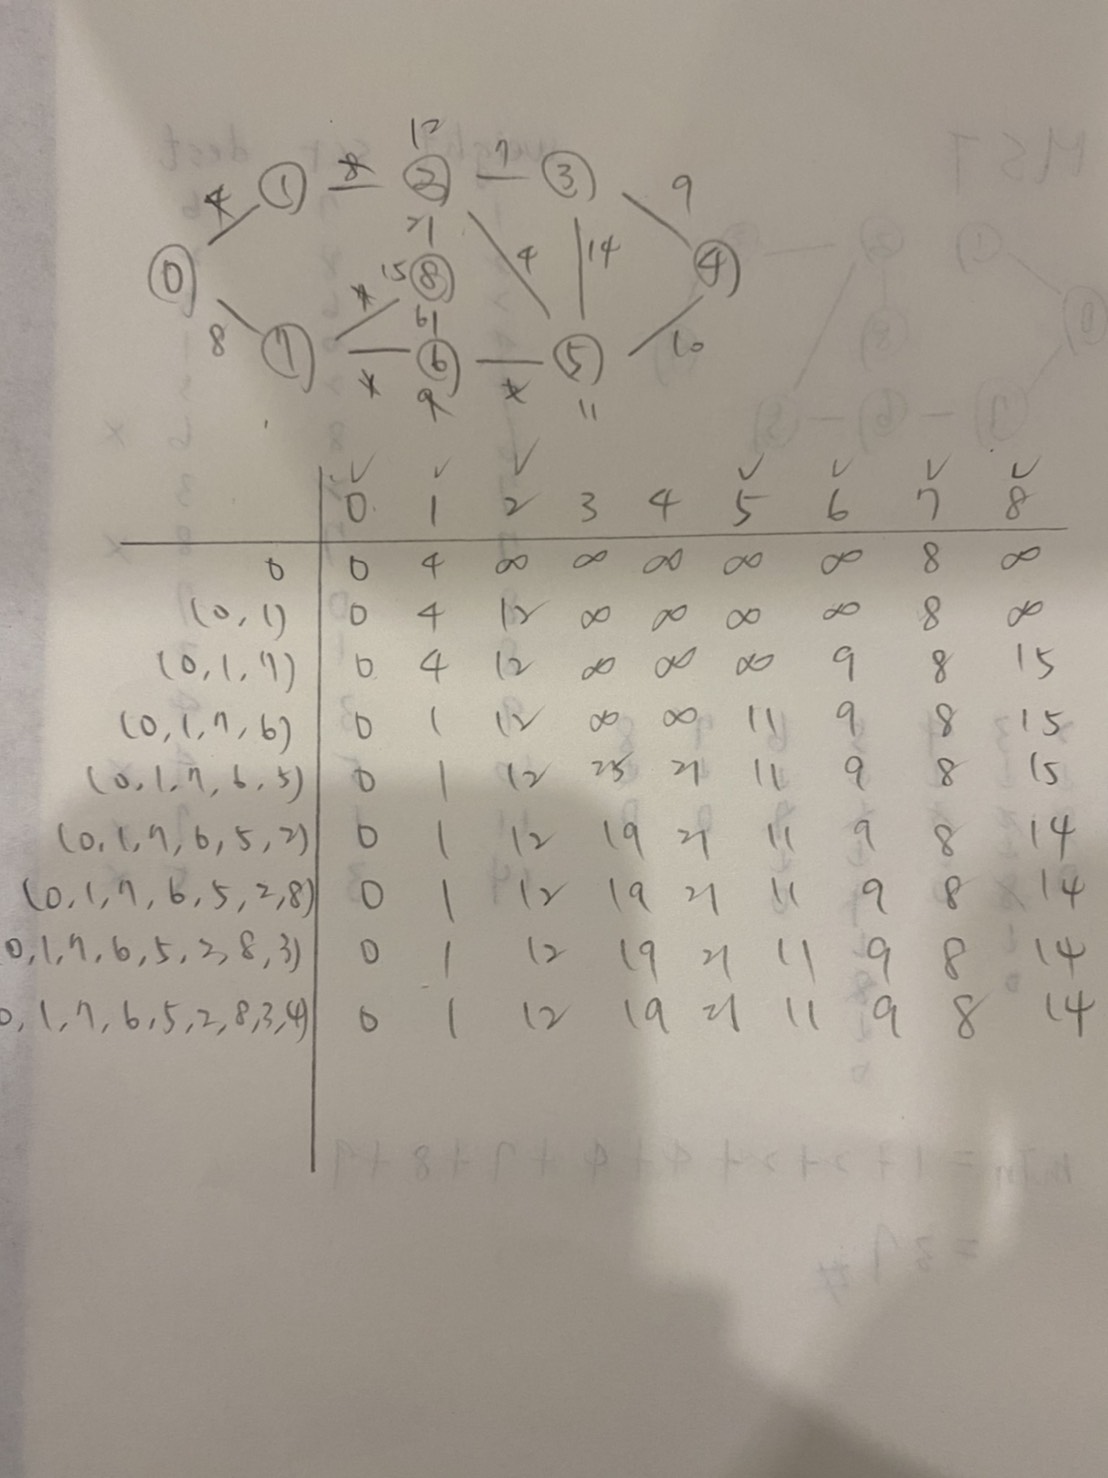 12
4 ① 8 ② 7 ③ 9
⓪ 2 4 14 ④
15 ⑧
8 ⑦ 6 ⑥ ⑤ 10
9 11
0 1 2 3 4 5 6 7 8
0 0 4 ∞ ∞ ∞ ∞ ∞ 8 ∞
(0,1) 0 4 12 ∞ ∞ ∞ ∞ 8 ∞
(0,1,7) 0 4 12 ∞ ∞ ∞ 9 8 15
(0,1,7,6) 0 1 12 ∞ ∞ 11 9 8 15
(0,1,7,6,5) 0 1 12 25 21 11 9 8 15
(0,1,7,6,5,2) 0 1 12 19 21 11 9 8 14
(0,1,7,6,5,2,8) 0 1 12 19 21 11 9 8 14
0,1,7,6,5,2,8,3) 0 1 12 19 21 11 9 8 14
0,1,7,6,5,2,8,3,4) 0 1 12 19 21 11 9 8 14